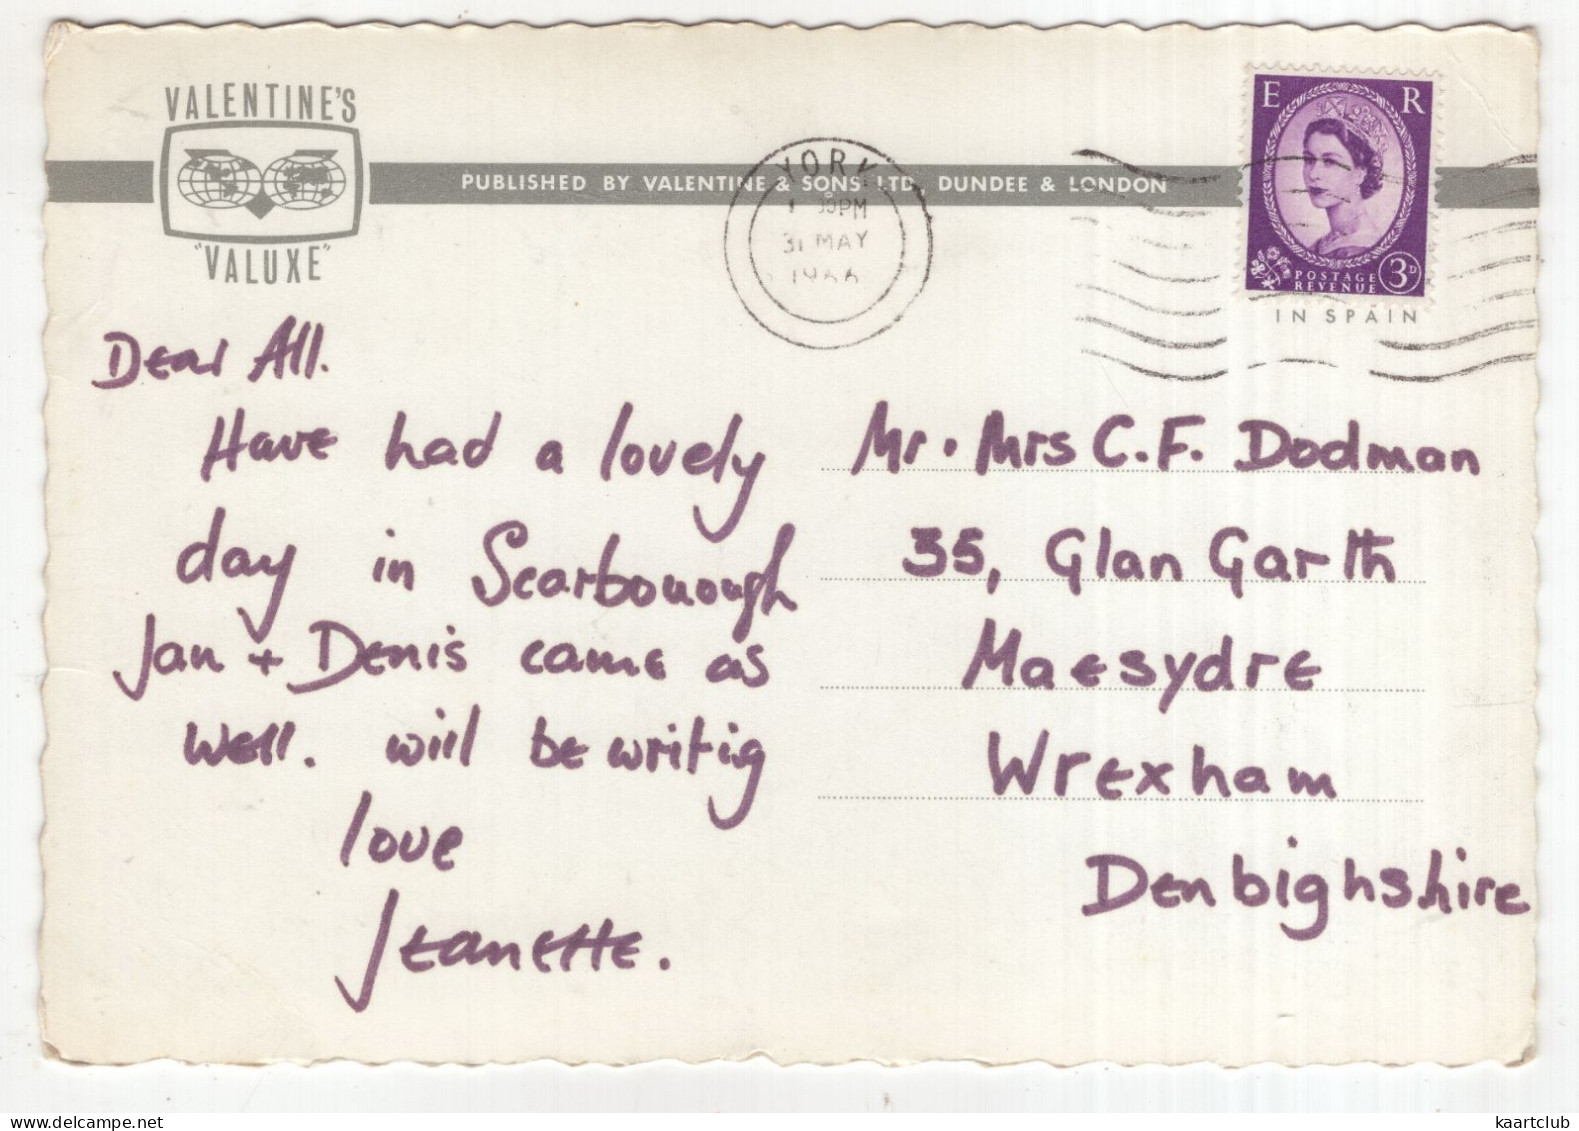 VALENTINE'S
"VALUXE"
PUBLISHED BY VALENTINE & SONS LTD, DUNDEE & LONDON
YORK
PM
31 MAY
1966
E R
POSTAGE
REVENUE
3D
IN SPAIN
Dear All.
Have had a lovely
day in Scarborough
Jan + Denis came as
well. will be writig
love
Jeanette.
Mr. Mrs C.F. Dodman
35, Glan Garth
Maesydre
Wrexham
Denbighshire
kaartclub